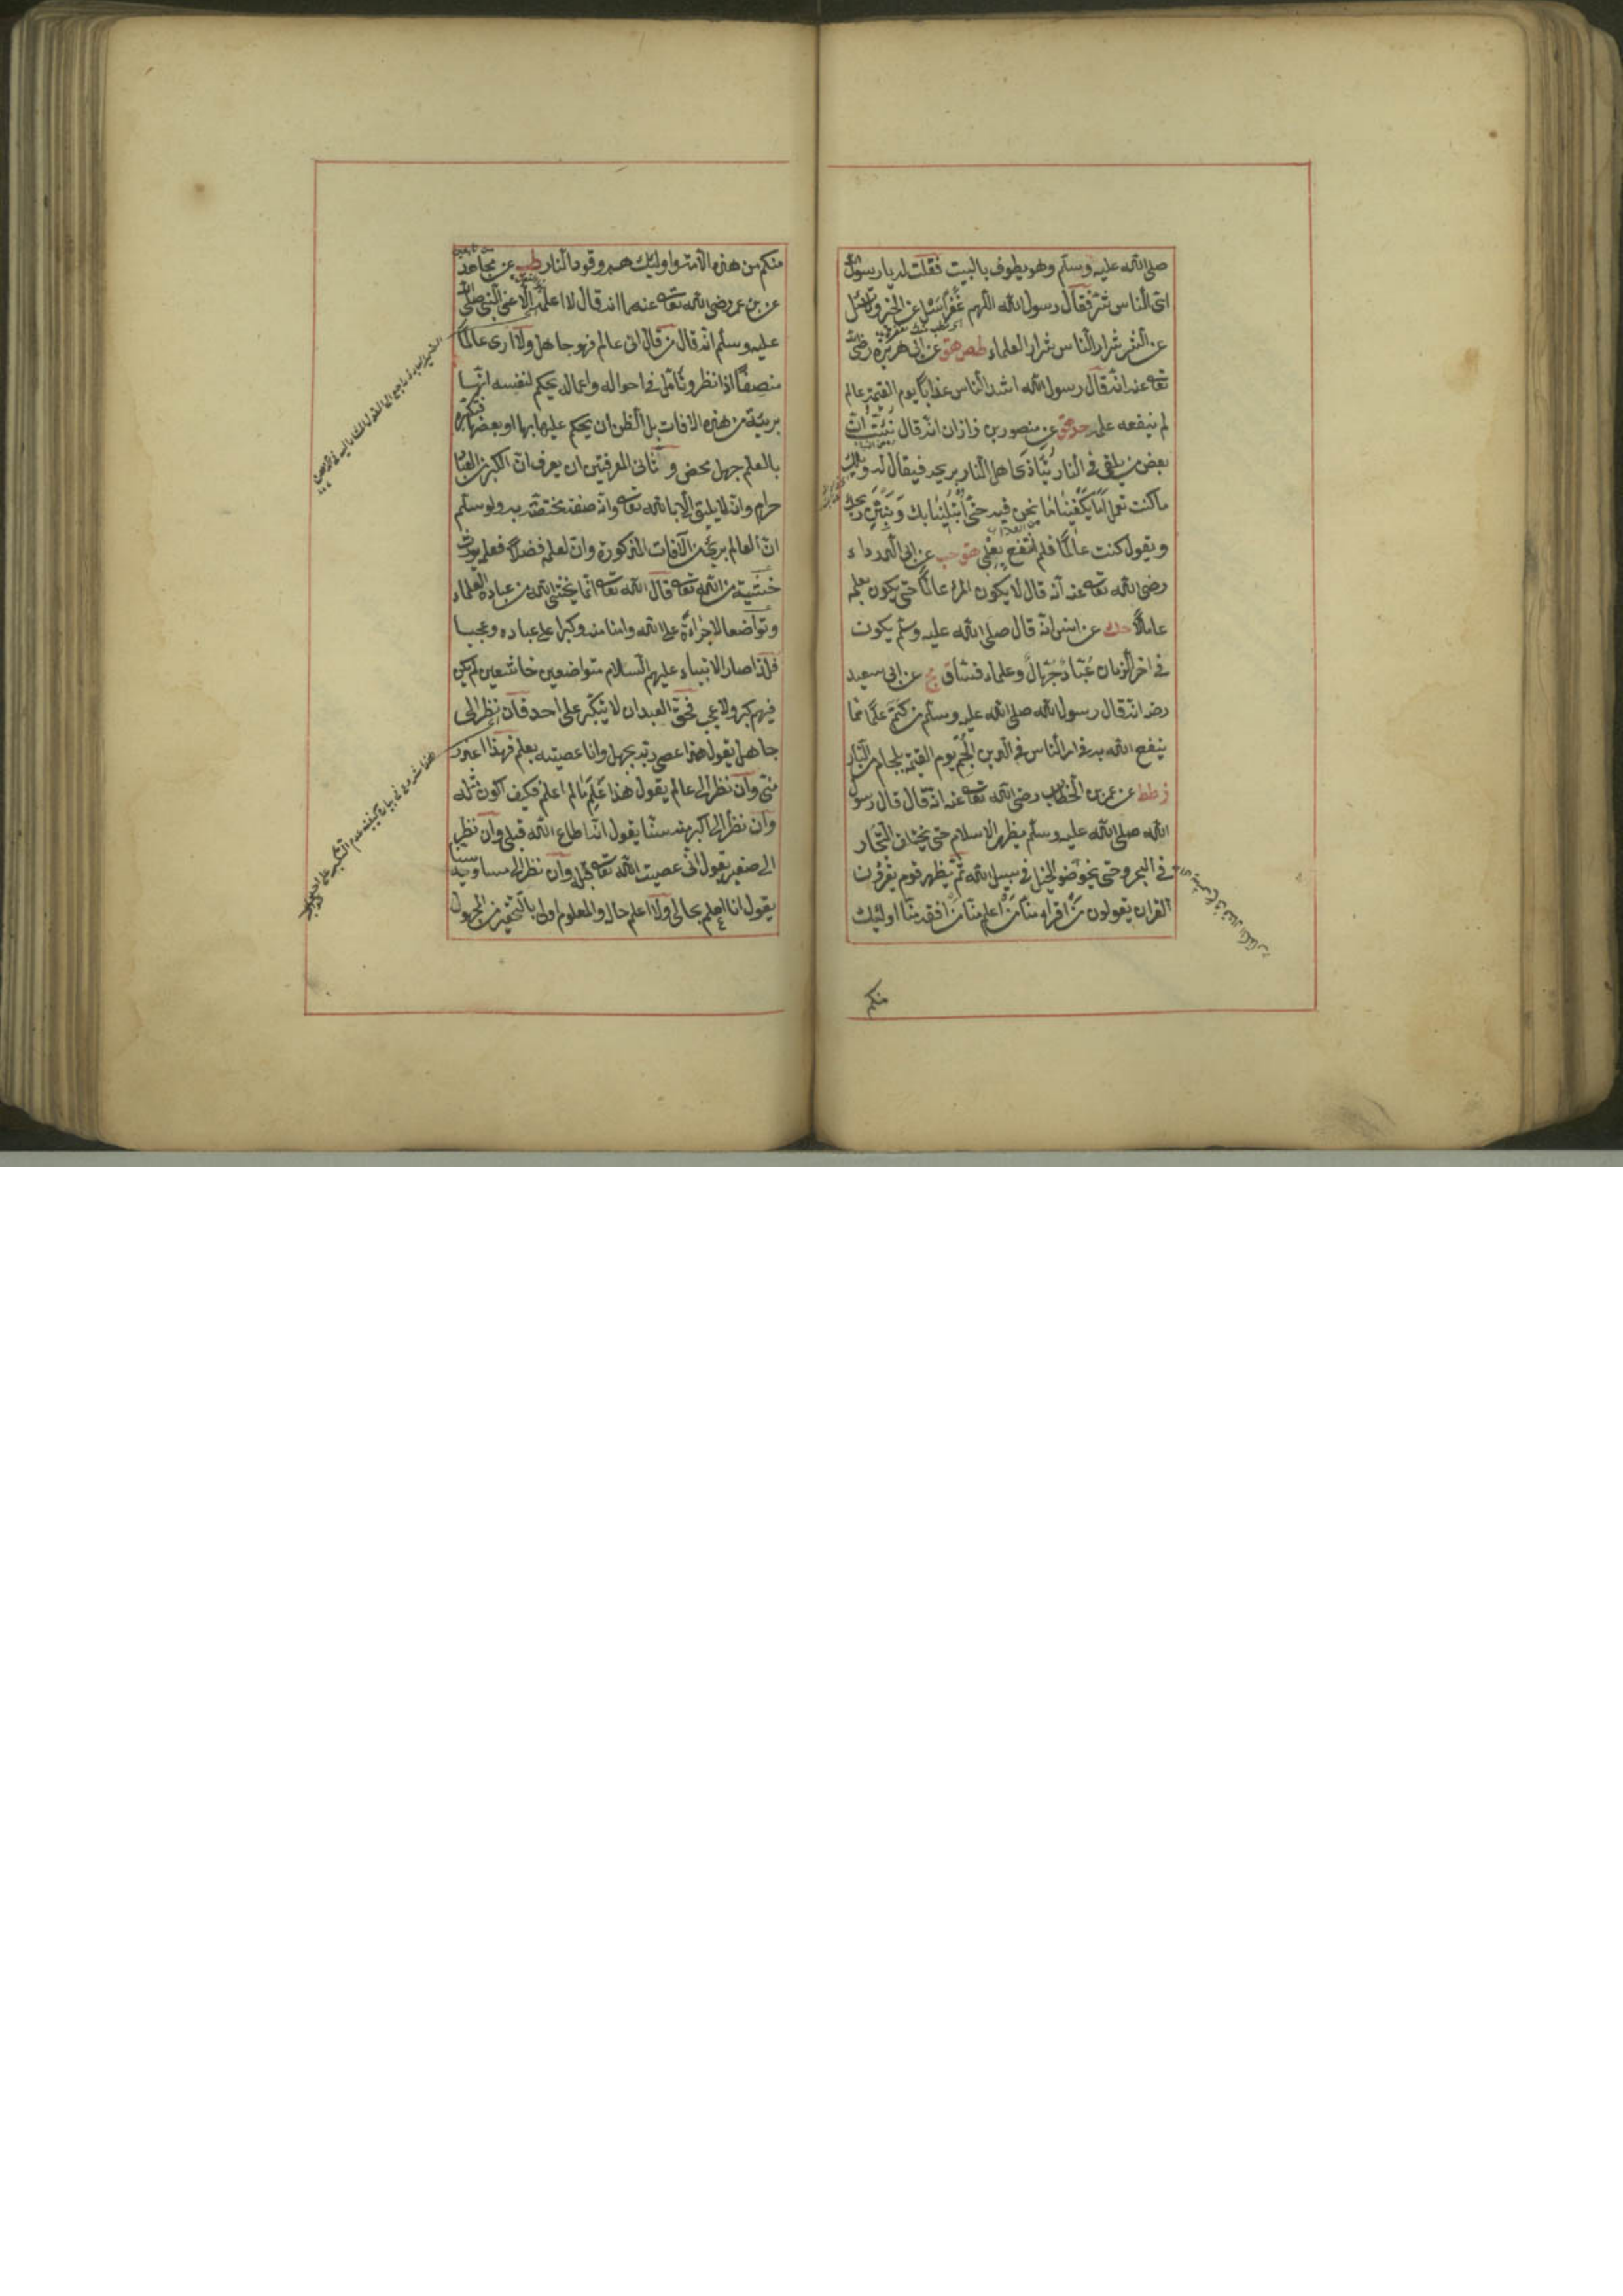 صلى الله عليه وسلم وهو يطوف بالبيت فقلت له يا رسول الله
اى الناس شر فقال رسول الله اللهم غفرا سل عن الخير ولا تسئل
عن الشر شرار الناس شرار العلماء طص هق عن ابى هريرة رضى الله
تعا عنه انه قال رسول الله اشد الناس عذابا يوم القيمة عالم
لم ينفعه علمه حد هق عن منصور بن زاذان انه قال نبئت ان
بعض من يلقى فى النار يتأذى اهل النار بريحه فيقال له ويلك
ما كنت تعمل اما يكفينا ما نحن فيه حتى ابتلينا بك وبنتن ريحك
ويقول كنت عالما فلم انتفع بعلمى هق حب عن ابى الدرداء
رضى الله تعا عنه انه قال لا يكون المرء عالما حتى يكون بعلمه
عاملا حك عن انس انه قال صلى الله عليه وسلم يكون
فى اخر الزمان عباد جهال وعلماء فساق مج عن ابى سعيد
رضه انه قال رسول الله صلى الله عليه وسلم من كتم علما مما
ينفع الله به فى امر الناس فى الدين الجم يوم القيمة بلجام من النار
ز طط عن عمر بن الخطاب رضى الله تعا عنه انه قال قال رسول
الله صلى الله عليه وسلم يظهر الاسلام حتى يختلف التجار
فى البحر وحتى يخوض الخيل فى سبيل الله ثم يظهر قوم يقرؤن
القران يقولون من اقرا منا من اعلم منا من افقه منا اولئك
منكم
منكم من هذه الامة واولئك هم وقود النار طب عن مجاهد
عن بن عمر رضى الله تعا عنهما انه قال لا اعلمه الا عن النبى صلى الله
عليه وسلم انه قال من قال انى عالم فهو جاهل ولا ارى عالما
منصفا اذا نظر وتأمل فى احواله واعماله يحكم لنفسه انها
بريئة من هذه الافات بل الظن ان يحكم عليها بها او بعضها فتكبره
بالعلم جهل محض وثانى المعرفتين ان يعرف ان الكبر من العباد
حرام وانه لا يليق الا بالله تعا وانه صفة مختصة به ولو سلم
ان العالم برىء من الافات المذكورة وان لعلمه فضلا فعلمه يورث
خشية من الله تعا قال الله تعا انما يخشى الله من عباده العلماء
وتواضعا لا جراءة على الله وامنا منه وكبرا على عباده وعجبا
فلذا صار الانبياء عليهم السلام متواضعين خاشعين لم يكن
فيهم كبر ولا عجب فحق العبد ان لا يتكبر على احد فان نظر الى
جاهل يقول هذا عصى ربه بجهل وانا عصيته بعلم فهذا اعذر
منى وان نظر الى عالم يقول هذا علم ما لم اعلم فكيف اكون مثله
وان نظر الى اكبر منه سنا يقول انه اطاع الله قبلى وان نظر
الى صغير يقول انى عصيت الله تعا قبله وان نظر الى مساويه سنا
يقول انا اعلم بحالى ولا اعلم حاله والمعلوم اولى بالتحقير من المجهول
هذا شروع فى بيان كيفية عدم التكبر على